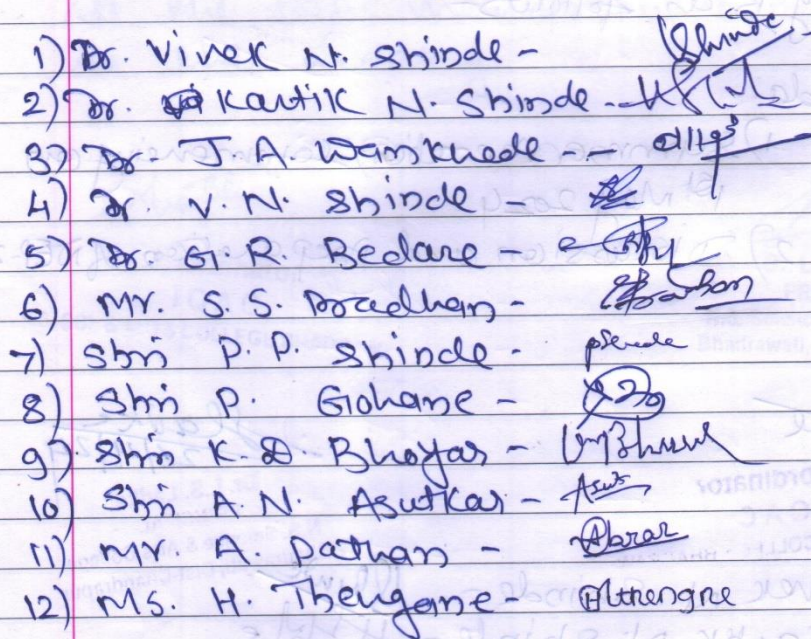 1) Dr. Vivek N. Shinde - Shinde
2) Dr. Kartik N. Shinde -
3) Dr J. A. Warkhede -
4) Dr. V. N. Shinde -
5) Dr G. R. Bedare
6) Mr. S. S. Pradhan Pradhan
7) Shri P. P. Shinde - pshinde
8) Shri P. Gohane -
9) Shri K D Bhoyar -
10) Shri A. N. Asutkar -
11) Mr. A. Pathan -
12) Ms. H. Thengane - Hthengne